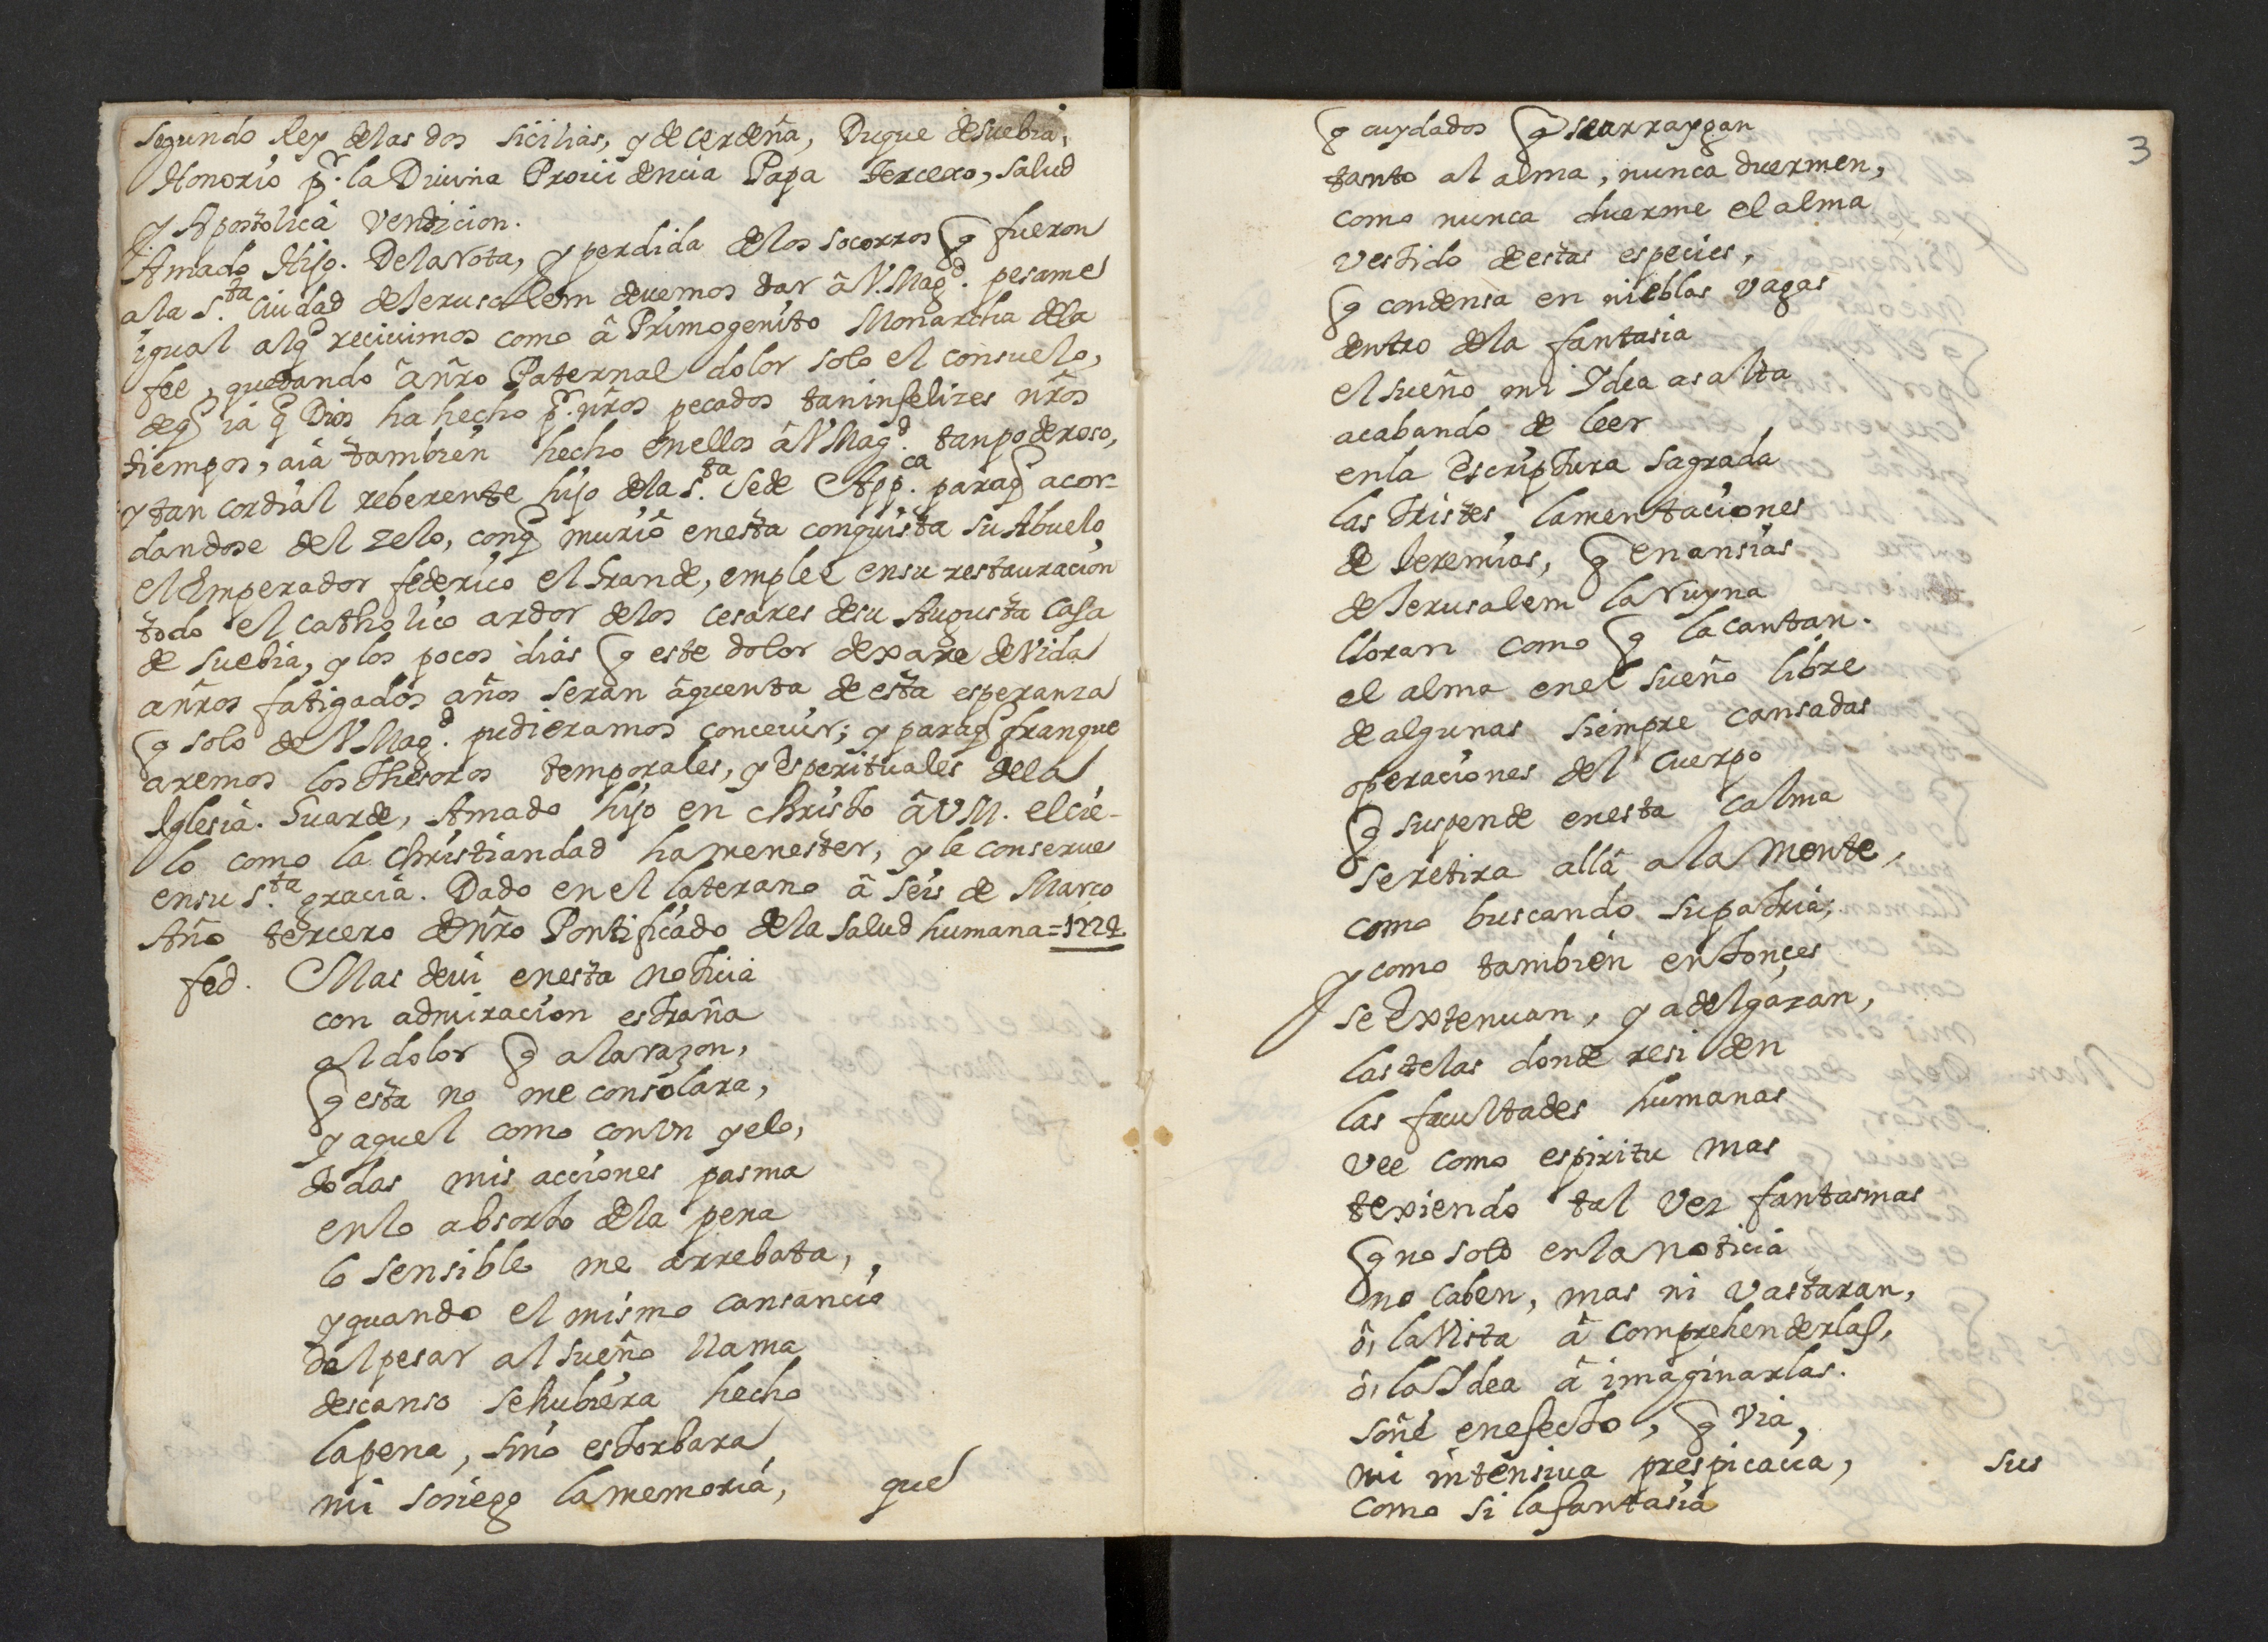 segundo Rey delas dos sicilias, y de cerdeña, Duque desuebia,
Honorio pr. la Diuina Prouidencia Papa tercero, salud
y Apostolica vendicion.
Amado Hijo. Dela rota, y perdida delos socorros q fueron
ala s.ta Ciudad de Ierusalem deuemos dar â V. Magd. pesame
igual alq reciuimos como â Primogenito Monarcha dela
fee, quedando âñro Paternal dolor solo el consuelo,
deq ia q Dios ha hecho pr. ñros pecados taninfelizes ñros
tiempos, aia tambien hecho enellos â V Magd. tanpoderoso,
y tan cordial reberente hijo dela s.ta sede App.ca paraq acor-
dandose del zelo, conq muriô enesta conquista su Abuelo
el Emperador federico el Grande, emplee ensu restauracion
todo el catholico ardor delos cesares desu Augusta Casa
de suebia, y los pocos dias q este dolor dexare de vida
añros fatigados años seran âquenta de esta esperanza
q solo de V Magd. pudieramos conceuir; y paraq franque
aremos los thesoros temporales, y Esperituales dela
Iglesia. Guarde, Amado hijo en christo â V M. el cie-
lo como la christiandad hamenester, y le conserue
ensu s.ta gracia. Dado en el laterano â seis de Março
Año tercero deñro Pontificado dela salud humana=1224
fed. Mas deui enesta noticia
con admiracion estraña
al dolor q ala razon,
q esta no me consolara,
y aquel como con vn yelo,
todas mis acciones pasma
enlo absorto dela pena
lo sensible me arrebata,
y quando el mismo cansancio
del pesar al sueño llama
descanso sehubiera hecho
lapena, sino estorbara
mi sosiego lamemoria, que
3
q cuydados q searraygan
tanto al alma, nunca duermen,
como nunca duerme el alma
vestido destas especies,
q condensa en nieblas vagas
dentro dela fantasia
el sueño mi Ydea asalta
acabando de leer
enla Escriptura sagrada
las tristes lamentaciones
de Ieremias, q enansias
de Ierusalem la ruyna
lloran como q la cantan.
el alma enel sueño libre
de algunas siempre cansadas
operaciones del cuerpo
q suspende enesta calma
seretira allâ ala mente,
como buscando supatria;
y como tambien entonçes
se Extenuan, y adelgazan,
las telas donde residen
las facultades humanas
vee como espiritu mas
texiendo tal vez fantasmas
q no solo enla noticia
no caben, mas ni vastaran,
ô, la vista â comprehenderlas,
ô, la Ydea â imaginarlas.
soñê enefecto, q via,
mi intensiua prespicacia,
como si la fantasia sus